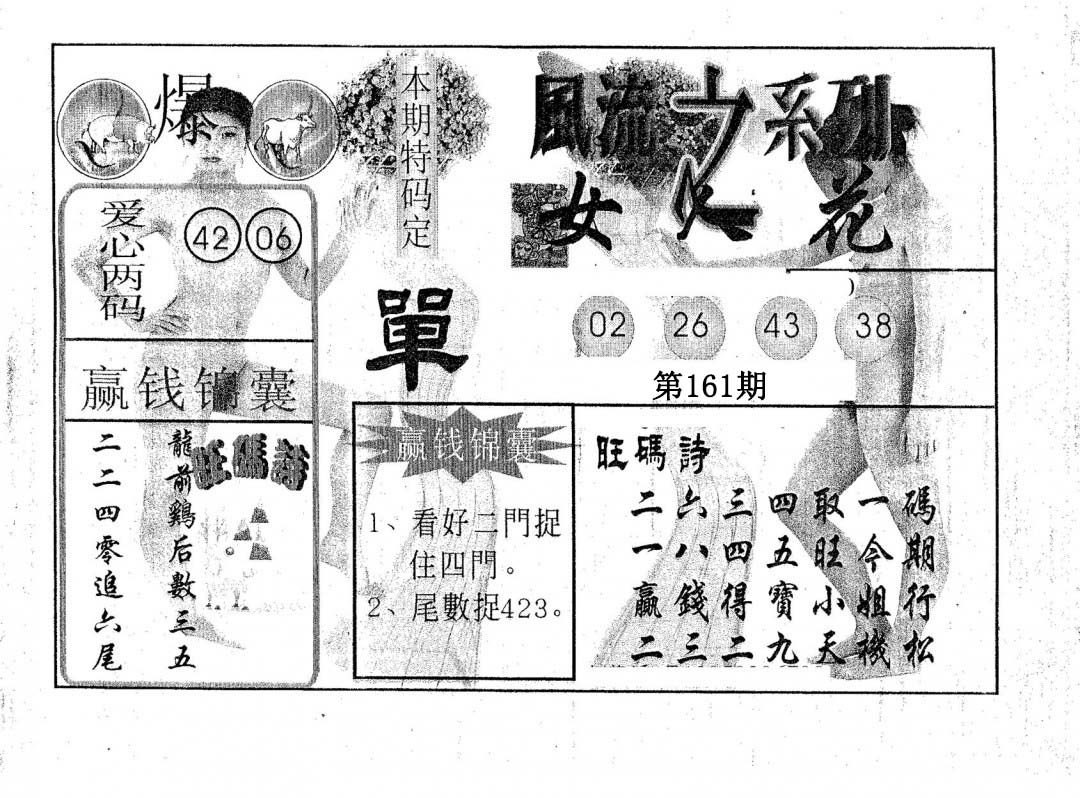 爆
爱心两码
42 06
赢钱锦囊
旺碼詩
龍前鷄后數三五
二二四零追六尾
本期特码定
單
赢钱锦囊
1、看好二門捉
住四門。
2、尾數捉423。
風流之系列
女人花
02 26 43 38
第161期
旺碼詩
二六三四取一碼
一八四五旺今期
贏錢得寶小姐行
二三二九天機松